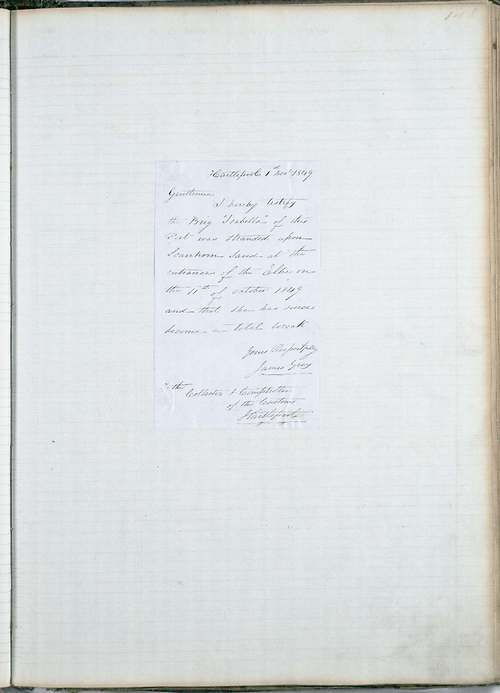 Hartlepool 1st Nov 1849
Gentlemen
I hereby Certify
the Brig "Isabella" of this
Port was stranded upon
Scarhorn Sand at the
entrance of the Elbe on
the 11th of October 1849
and that she has since
become a total wreck
Yours Respectfully
James Gray
To the
Collector & Comptroller
of the Customs
Hartlepool